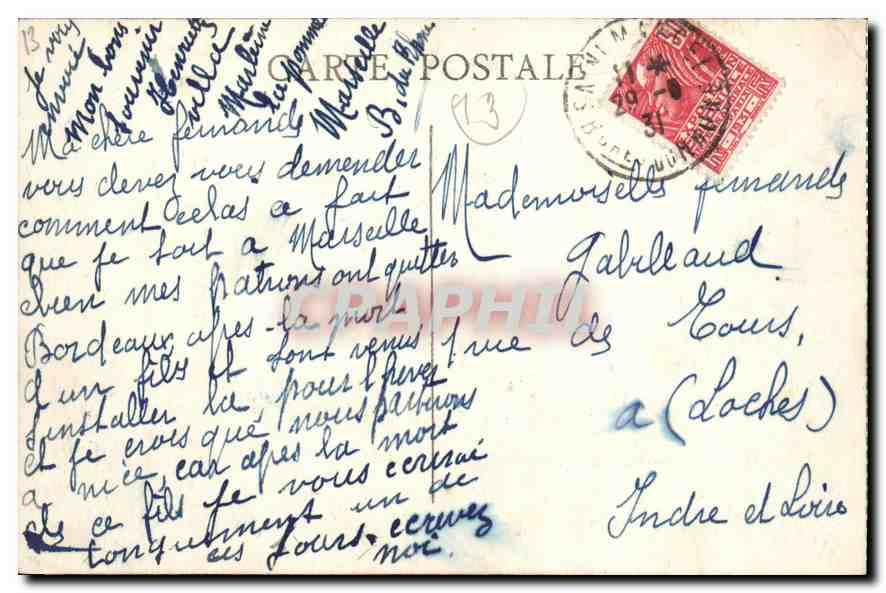 CARTE POSTALE
13
13
Je vous
envoie
Mon bons
souvenir
Henriette
villa
Marlène
La Pomme
Marseille
B. du Rhône
Ma chère fernande
vous devez vous demender
comment celas a fait
que je soit a Marseille
bien mes patrons ont quitter
Bordeaux apes la mort
d'un fils et sont venus
s'installer la, pour l'hiver
et je crois que nous partirons
a nice, car apes la mort
de ce fils je vous ecrirai
longuement un de
ces jours. ecrivez
moi.
Mademoiselle fernande
Gabilland
1 rue de Tours,
a (Loches)
Indre et Loire
CRAPHIL
11 *
29 -8
31